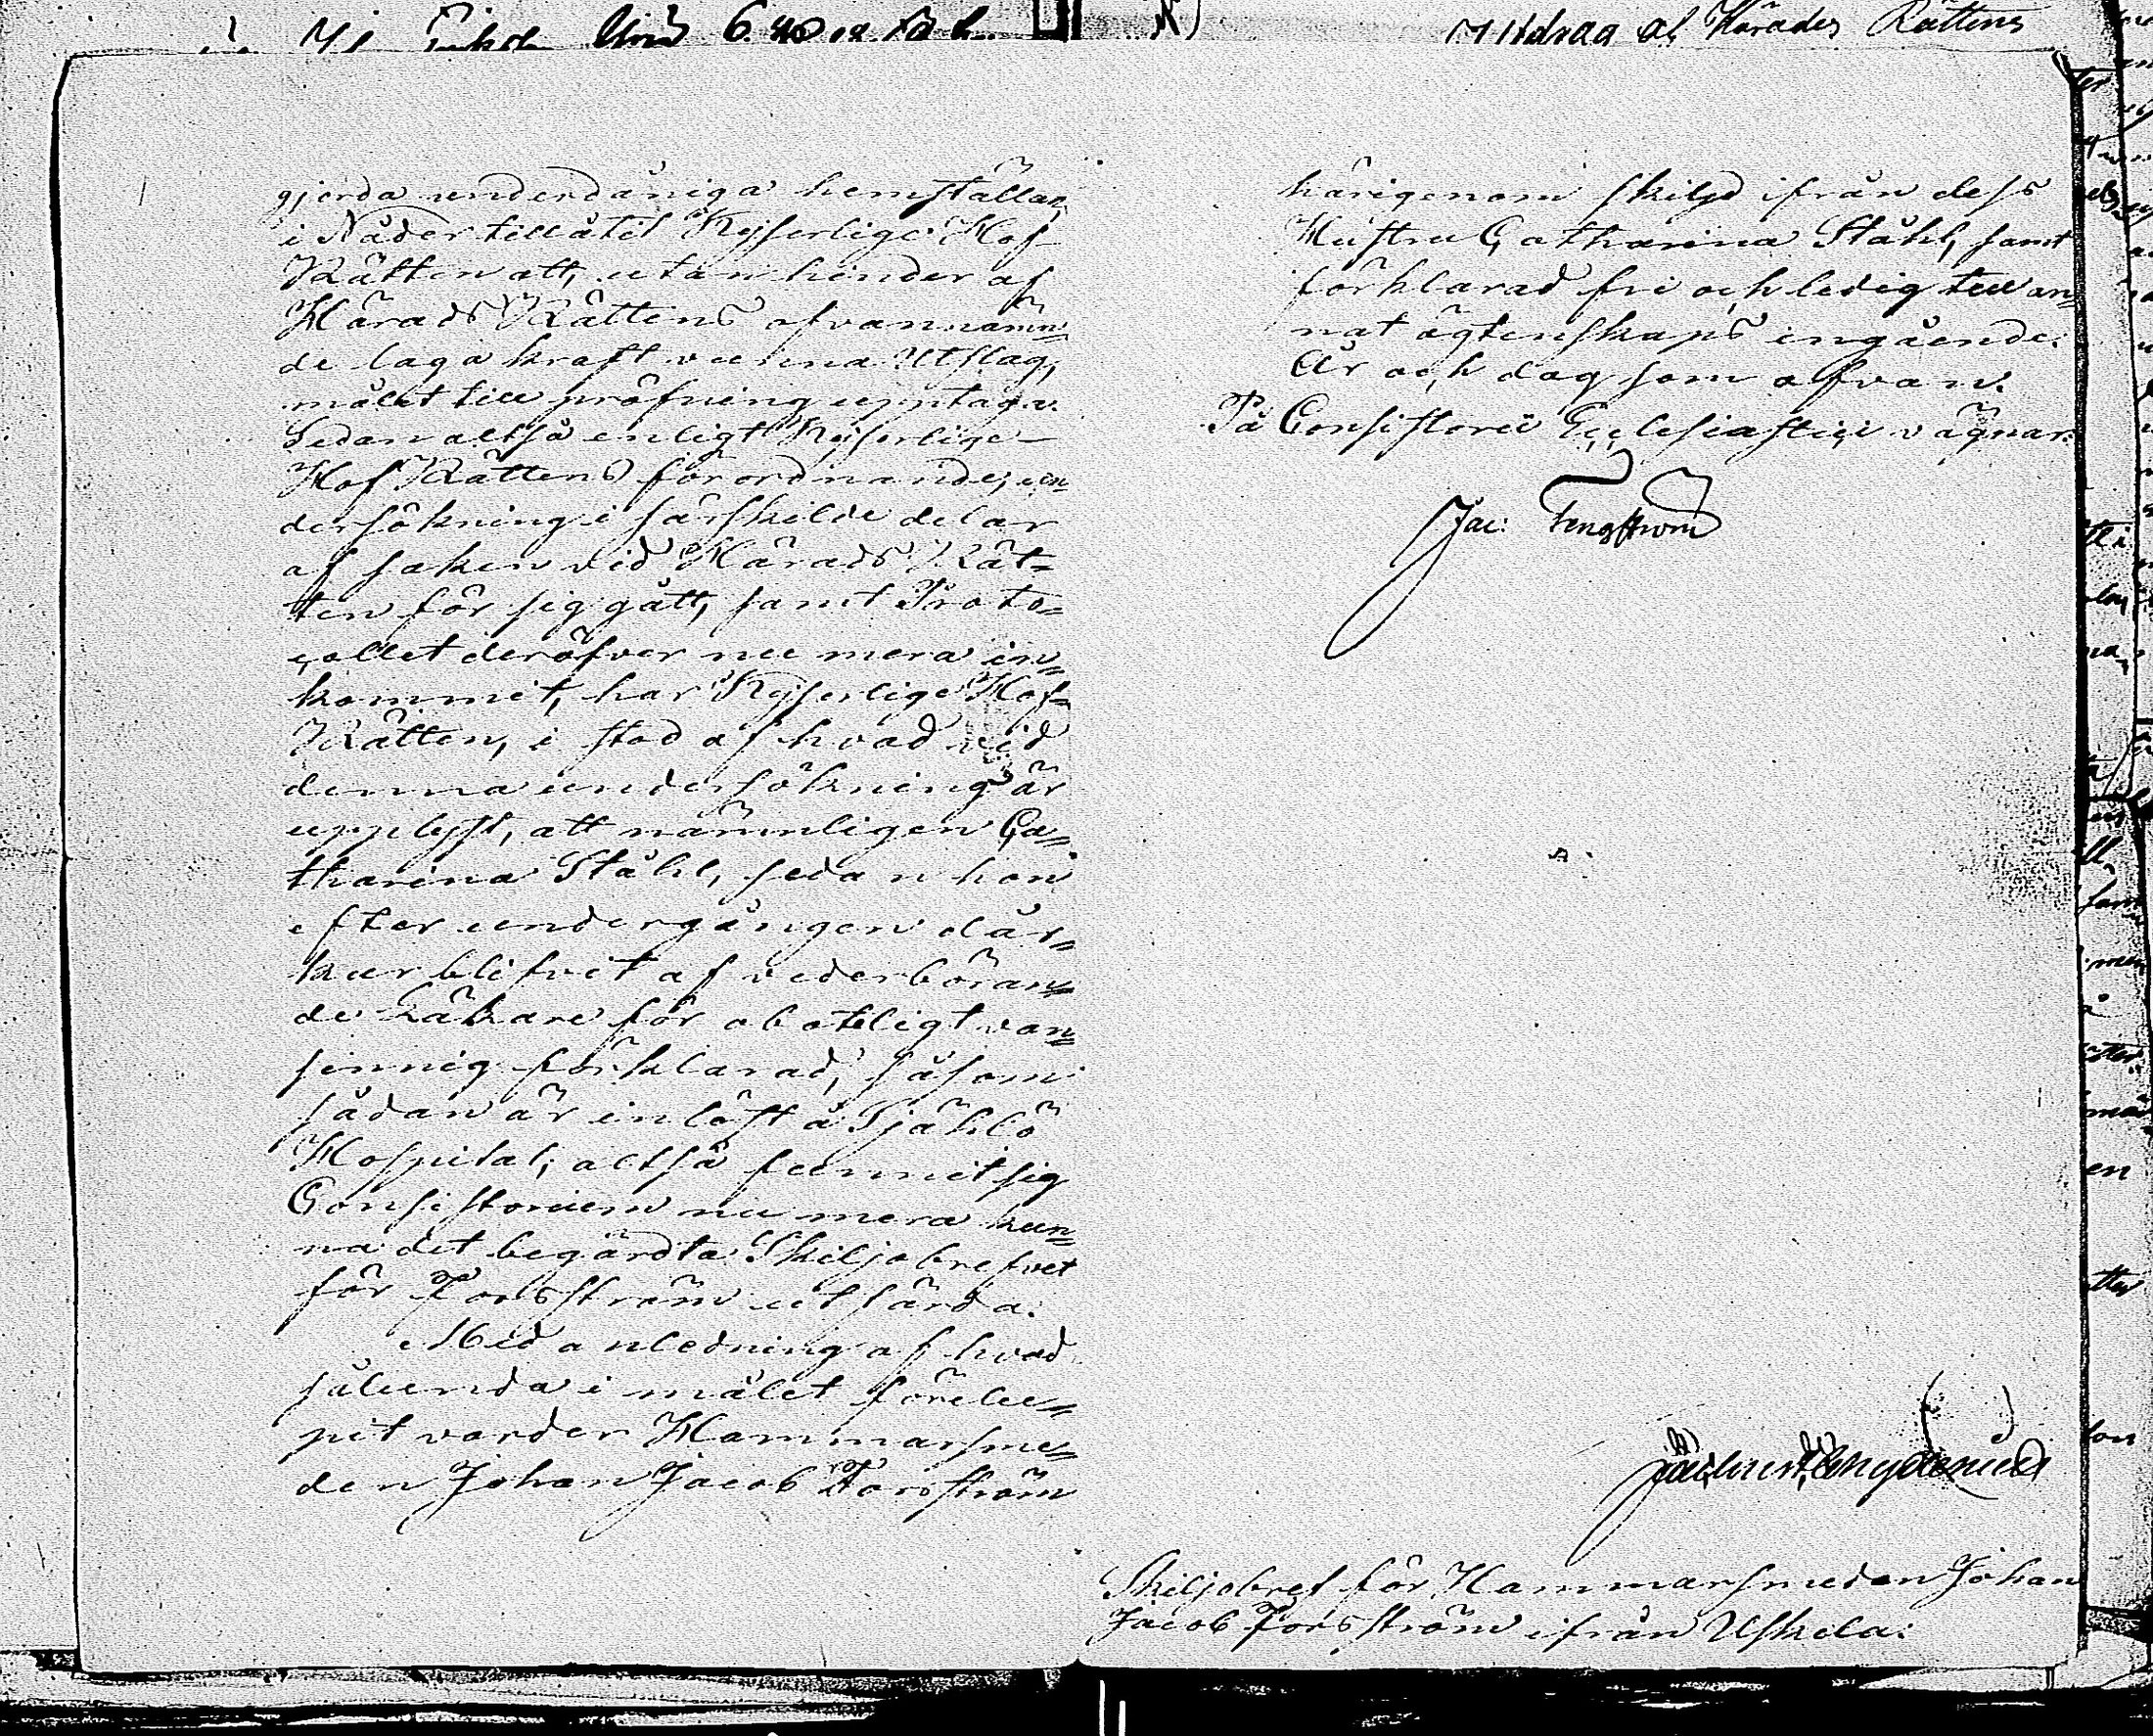 Utdrag af Härades Rättens
gjorda underdåniga hemställan,
i Nåder tillåtit Kejserlige Hof-
Rätten att, utan hinder af
Härads Rättens ofvannämn=
de laga kraft vunna Utslag,
målet till pröfning upptaga.
Sedan altså enligt Kejserlige
Hof Rättens förordnande, un=
dersökning i särskilde delar
af saken vid Härads Rät=
ten för sig gått, samt Proto=
collet deröfver nu mera in=
kommit, har Kejserlige Hof=
Rätten, i stöd af hvad vid
denna undersökning är
upplyst, att nämnligen Ca=
tharina Ståhl, sedan hon
efter undergången dår=
kur blifvit af vederböran=
de Läkare för obotligt van=
sinnig förklarad, såsom
sådan är inlöst å Själö
Hospital; altså funnit sig
Consistorium nu mera kun=
na det begärdta Skiljobrefvet
för Forsström utfärda.
Med anledning af hvad
sålunda i målet förelu=
pit varder Hammarsme=
den Johan Jacob Forsström
härigenom skiljd ifrån dess
Hustru Catharina Ståhl, samt
förklarad fri och ledig till an=
nat ägtenskaps ingående.
År och dag som ofvan.
På Consistorii Ecclesiastici vägnar.
Jac: Tengström
Skiljobref för Hammarsmeden Johan
Jacob Forsström ifrån Uskela.